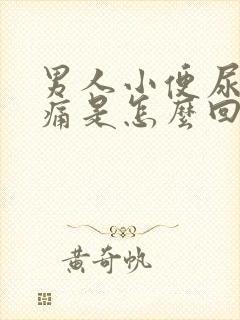 男人小便尿
痛是怎麼回
黄奇帆